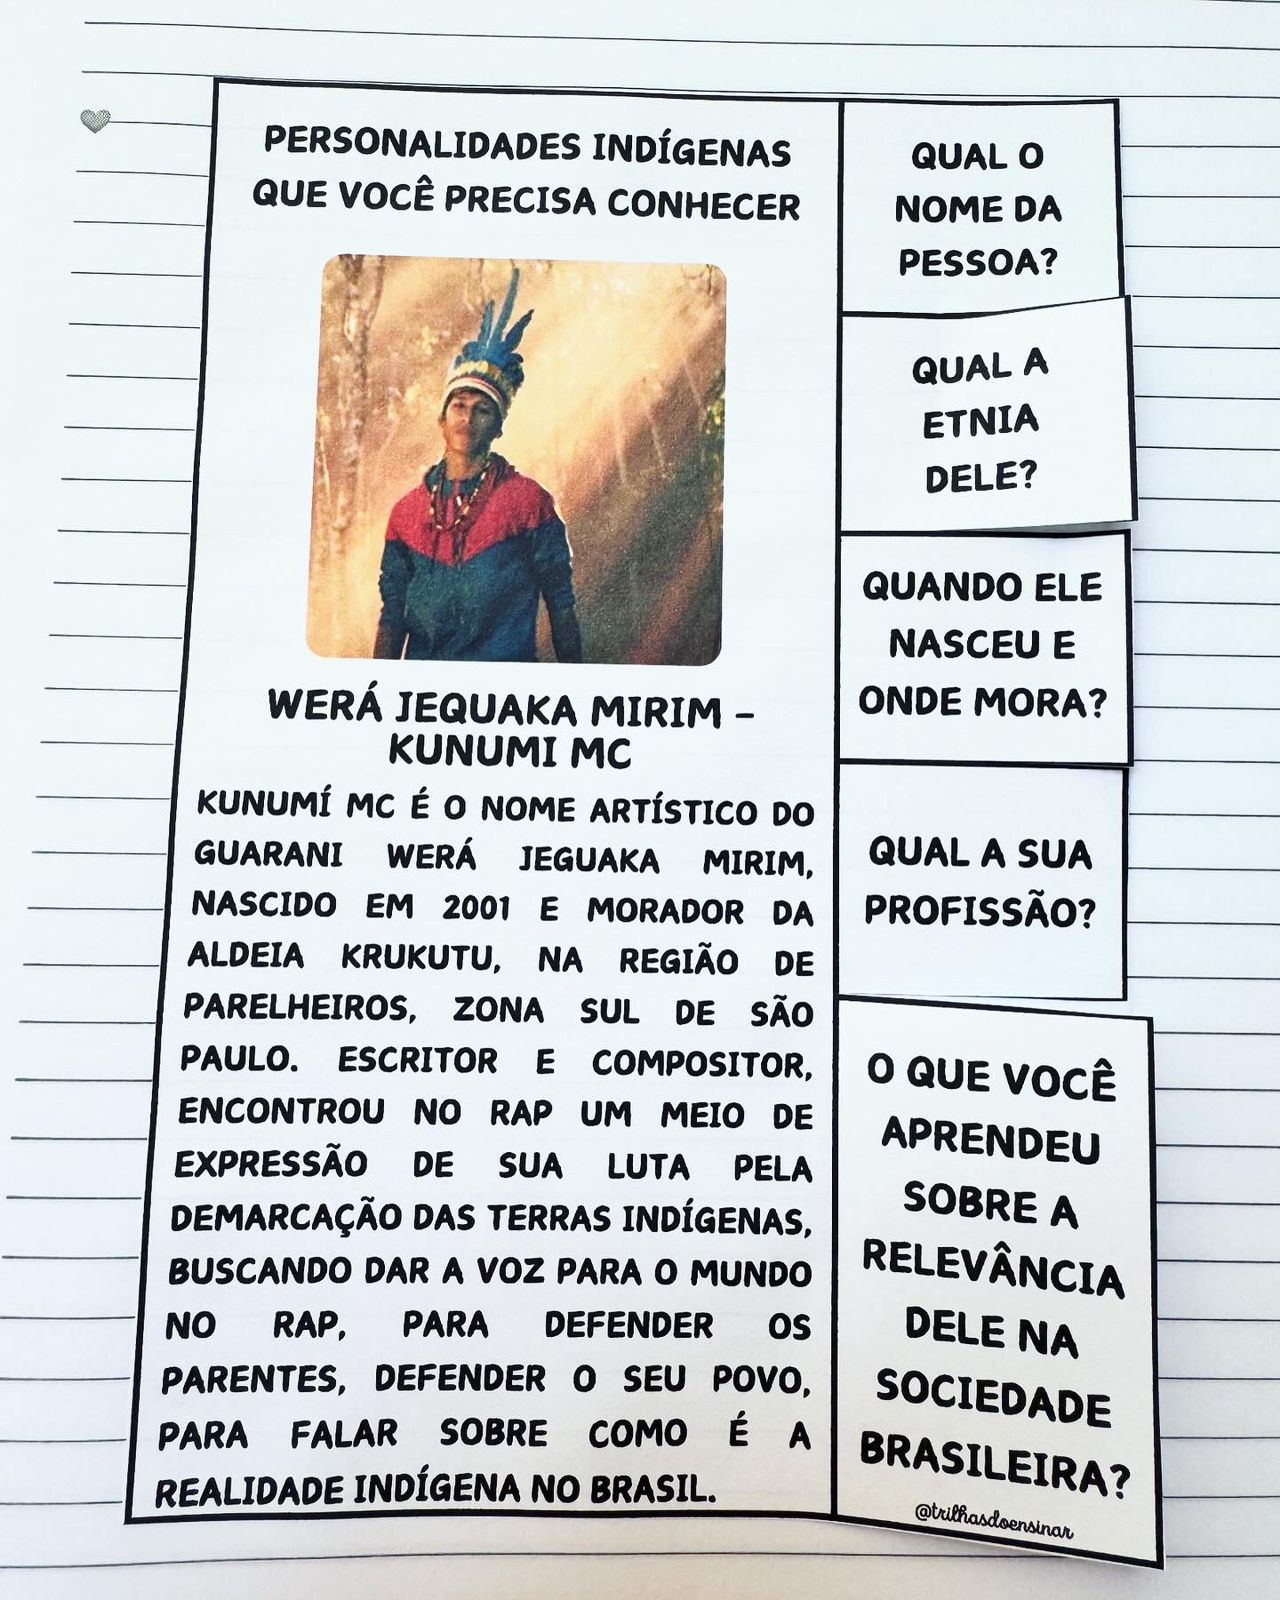 PERSONALIDADES INDÍGENAS
QUE VOCÊ PRECISA CONHECER
WERÁ JEQUAKA MIRIM –
KUNUMI MC
KUNUMÍ MC É O NOME ARTÍSTICO DO
GUARANI WERÁ JEGUAKA MIRIM,
NASCIDO EM 2001 E MORADOR DA
ALDEIA KRUKUTU, NA REGIÃO DE
PARELHEIROS, ZONA SUL DE SÃO
PAULO. ESCRITOR E COMPOSITOR,
ENCONTROU NO RAP UM MEIO DE
EXPRESSÃO DE SUA LUTA PELA
DEMARCAÇÃO DAS TERRAS INDÍGENAS,
BUSCANDO DAR A VOZ PARA O MUNDO
NO RAP, PARA DEFENDER OS
PARENTES, DEFENDER O SEU POVO,
PARA FALAR SOBRE COMO É A
REALIDADE INDÍGENA NO BRASIL.
QUAL O
NOME DA
PESSOA?
QUAL A
ETNIA
DELE?
QUANDO ELE
NASCEU E
ONDE MORA?
QUAL A SUA
PROFISSÃO?
O QUE VOCÊ
APRENDEU
SOBRE A
RELEVÂNCIA
DELE NA
SOCIEDADE
BRASILEIRA?
@trilhasdoensinar